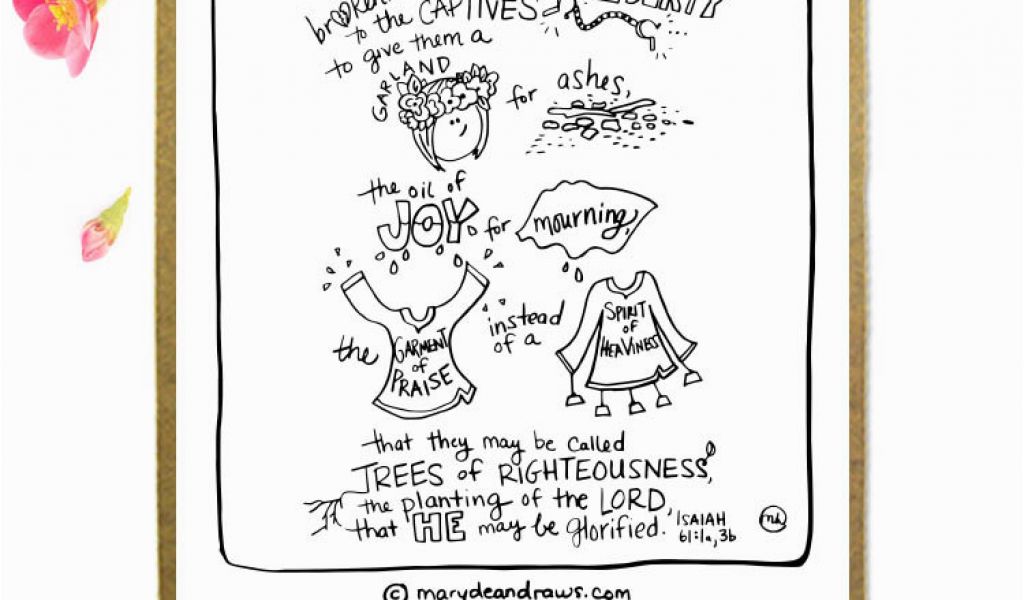 to the CAPTIVES LIBERTY
to give them a
GARLAND
for ashes,
the oil of
JOY for mourning,
the GARMENT of PRAISE
instead of a
SPIRIT of HEAVINESS
that they may be called
TREES of RIGHTEOUSNESS,
the planting of the LORD,
that HE may be glorified. ISAIAH
61:1a,3b
© marydeandraws.com